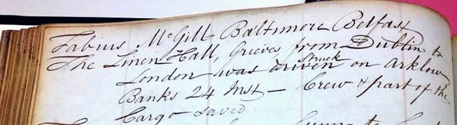 Fabius, McGill Baltimore Belfast
The Linen Hall, Greeves from Dublin to
London was driven on Arklow
struck
Banks 24 Inst - Crew & part of the
Cargo saved